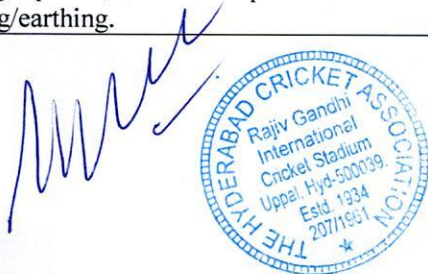 g/earthing.
THE HYDERABAD CRICKET ASSOCIATION
Rajiv Gandhi
International
Cricket Stadium
Uppal, Hyd-500039.
Estd. 1934
207/1961